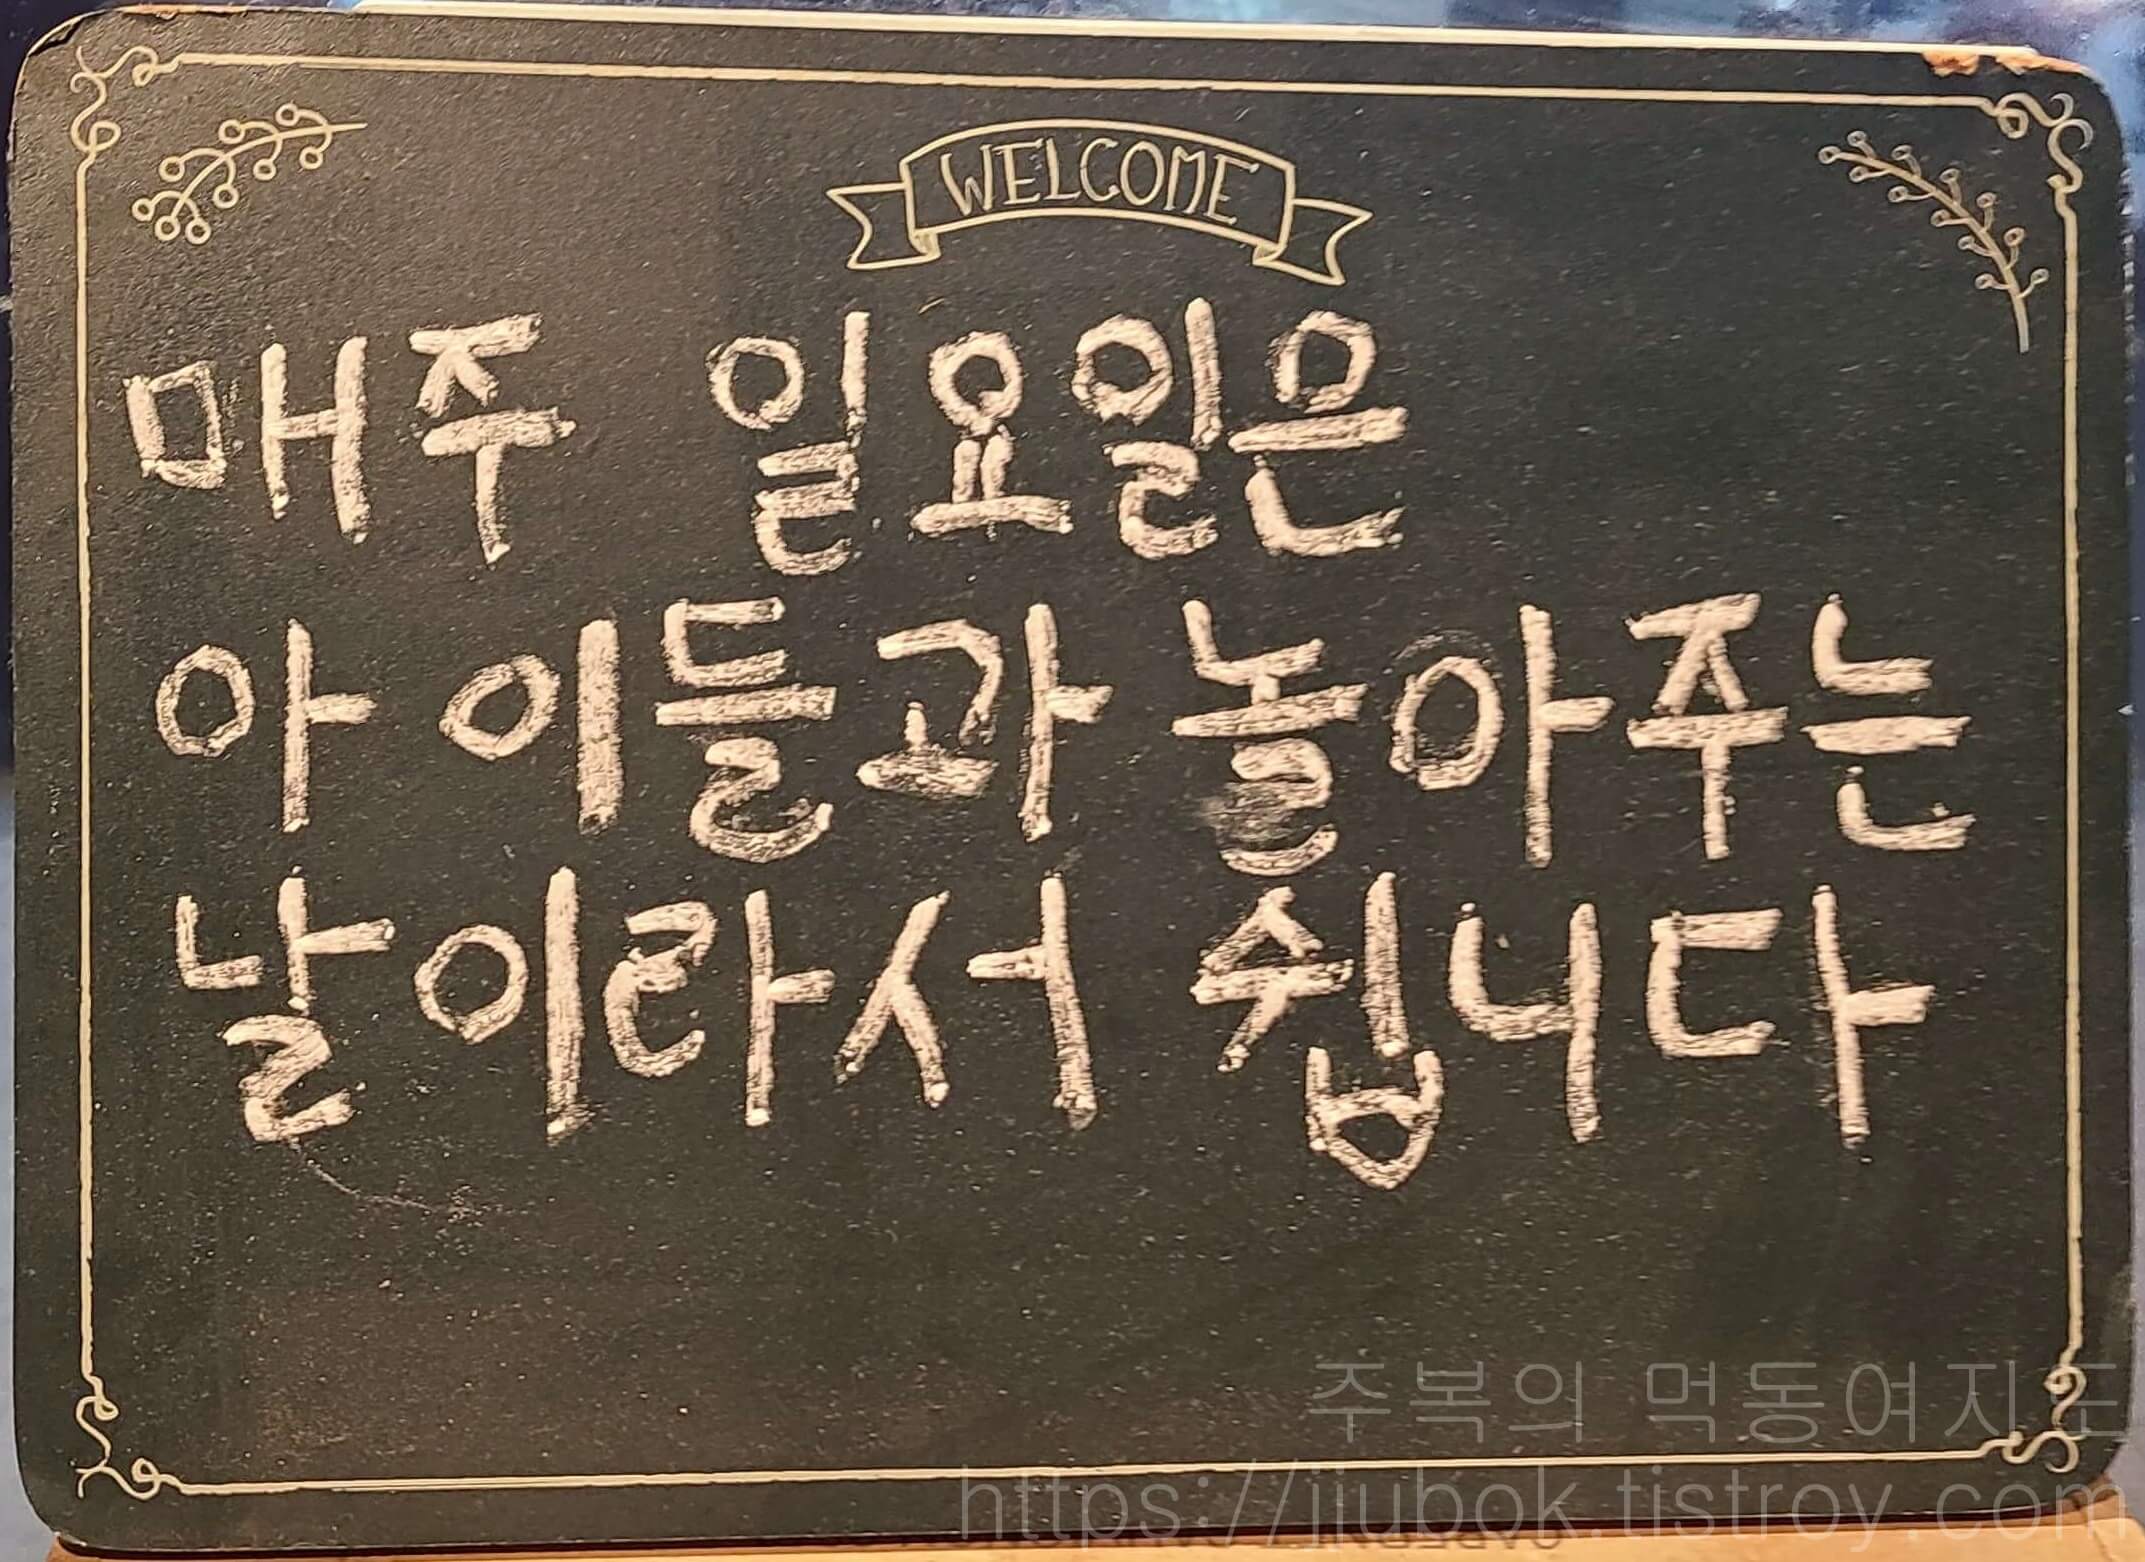 WELCOME
매주 일요일은
아이들과 놀아주는
날이라서 쉽니다
주복의 먹동여지도
https://jiubok.tistroy.com